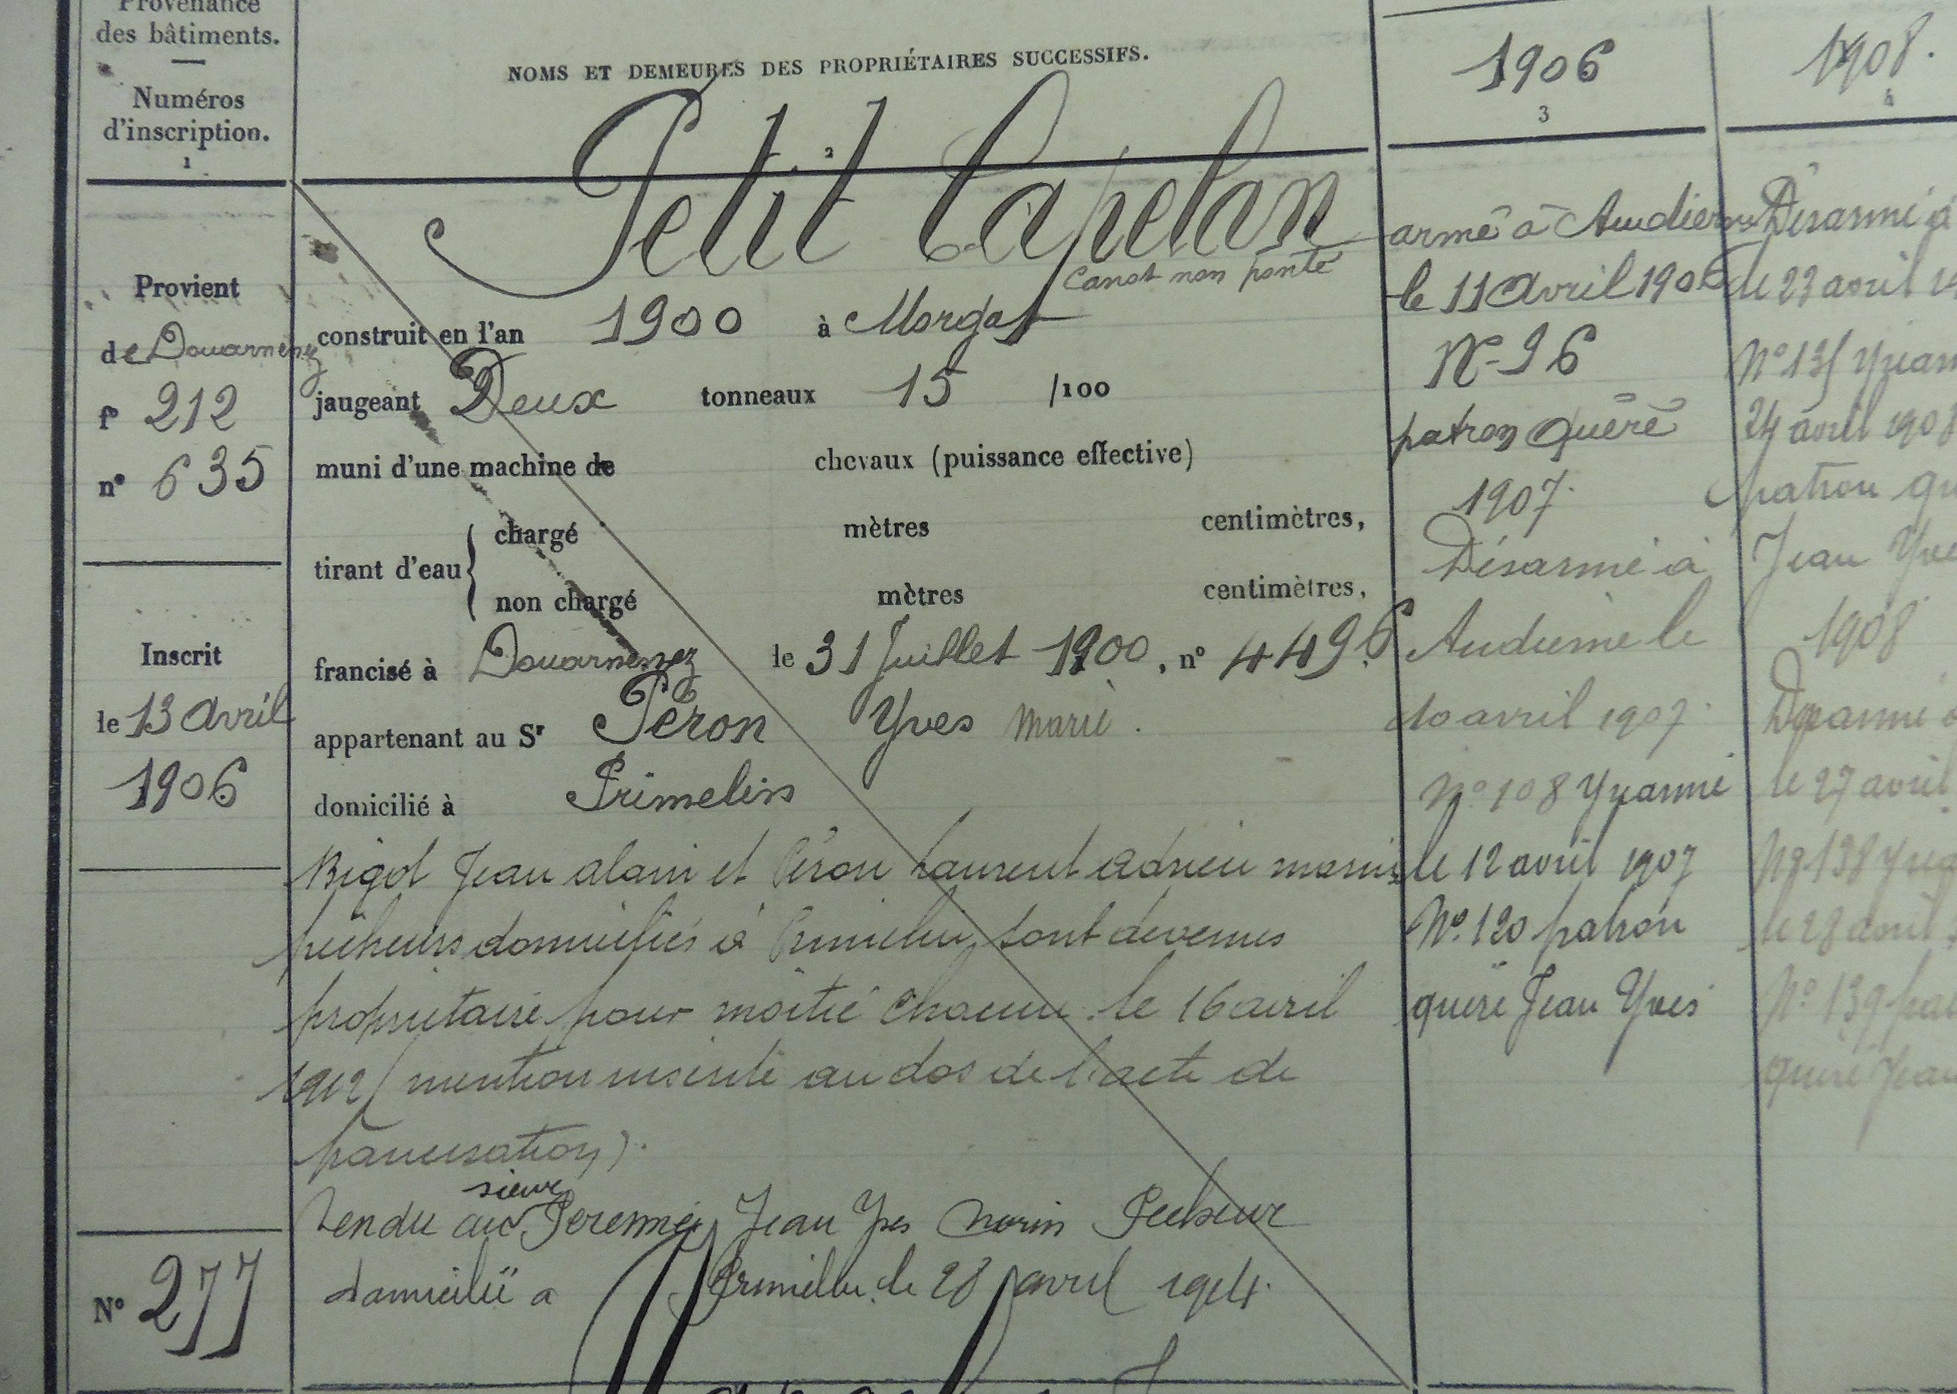 Provenance
des bâtiments.
Numéros
d'inscription.
1
Provient
de Douarnenez
f° 212
n° 635
Inscrit
le 13 avril
1906
N° 277
NOMS ET DEMEURES DES PROPRIÉTAIRES SUCCESSIFS.
2
Petit Capelan
Canot non ponté
construit en l'an 1900 à Morgat
jaugeant Deux tonneaux 15 /100
muni d'une machine de chevaux (puissance effective)
tirant d'eau { chargé mètres centimètres,
non chargé mètres centimètres,
francisé à Douarnenez le 31 Juillet 1900, n° 4496
appartenant au Sr Péron Yves Marie.
domicilié à Primelin
Bigot Jean alain et Péron Laurent adrien marins
pêcheurs domiciliés à Primelin, sont devenus
propriétaire pour moitié chacun le 16 avril
1912 (mention inscrite au dos de l'acte de
francisation).
sieur
Vendu au Jean Yves marin Pecheur
domicilié a Primelin le 28 avril 1914.
1906
3
armé à Audierne
le 11 avril 1906
N° 96
patron Quéré
1907
Désarmé à
Audierne le
10 avril 1907
N° 108 Y réarmé
le 12 avril 1907
N° 120 patron
quéré Jean Yves
1908.
4
Désarmé à
le 23 avril
N° 135 Y réarm
24 avril 1908
patron qu
Jean Yves
1908
Désarmé à
le 27 avril
N° 138 Y réa
le 28 avril
N° 139 pat
quéré Jean